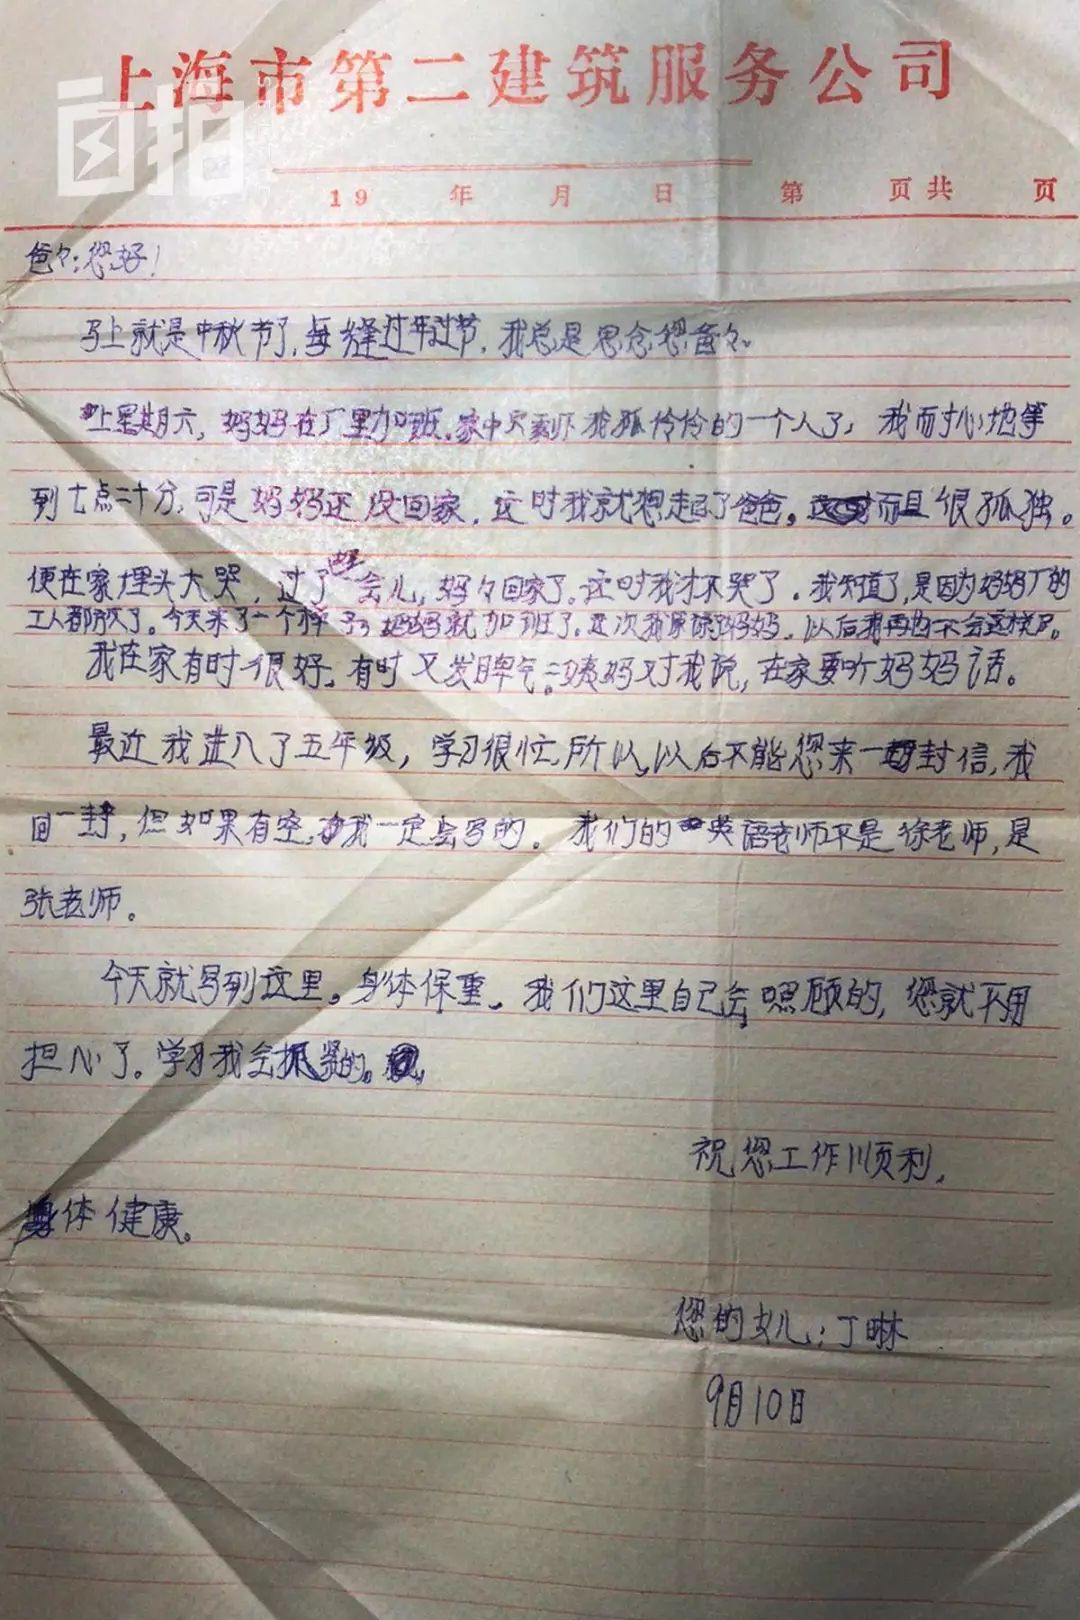 上海市第二建筑服务公司
自拍
19 年 月 日 第 页共 页
爸々:您好!
马上就是中秋节了,每缝过年过节,我总是思念您爸々。
上星期六,妈妈在厂里加班,家中只剩下我孤伶伶的一个人了,我而才心地等
到七点二十分,可是妈妈还没回家,这时我就想起了爸爸。而且很孤独。
便在家埋头大哭,过了好会儿,妈々回家了。这时我才不哭了。我知道了,是因为妈妈厂的
工人都放了。今天来了一个妈妈就加班了。这次我妈妈,以后我再也不会这样了。
我在家有时很好,有时又发脾气。二姨妈对我说,在家要听妈妈话。
最近我进入了五年级,学习很忙,所以,以后不能您来一封信,我
回一封,但如果有空,我一定会写的。我们的英语老师不是徐老师,是
张老师。
今天就写到这里。身体保重。我们这里自己会照顾的,您就不用
担心了。学习我会抓紧的。
祝您工作顺利,
身体健康。
您的女儿:丁啉
9月10日